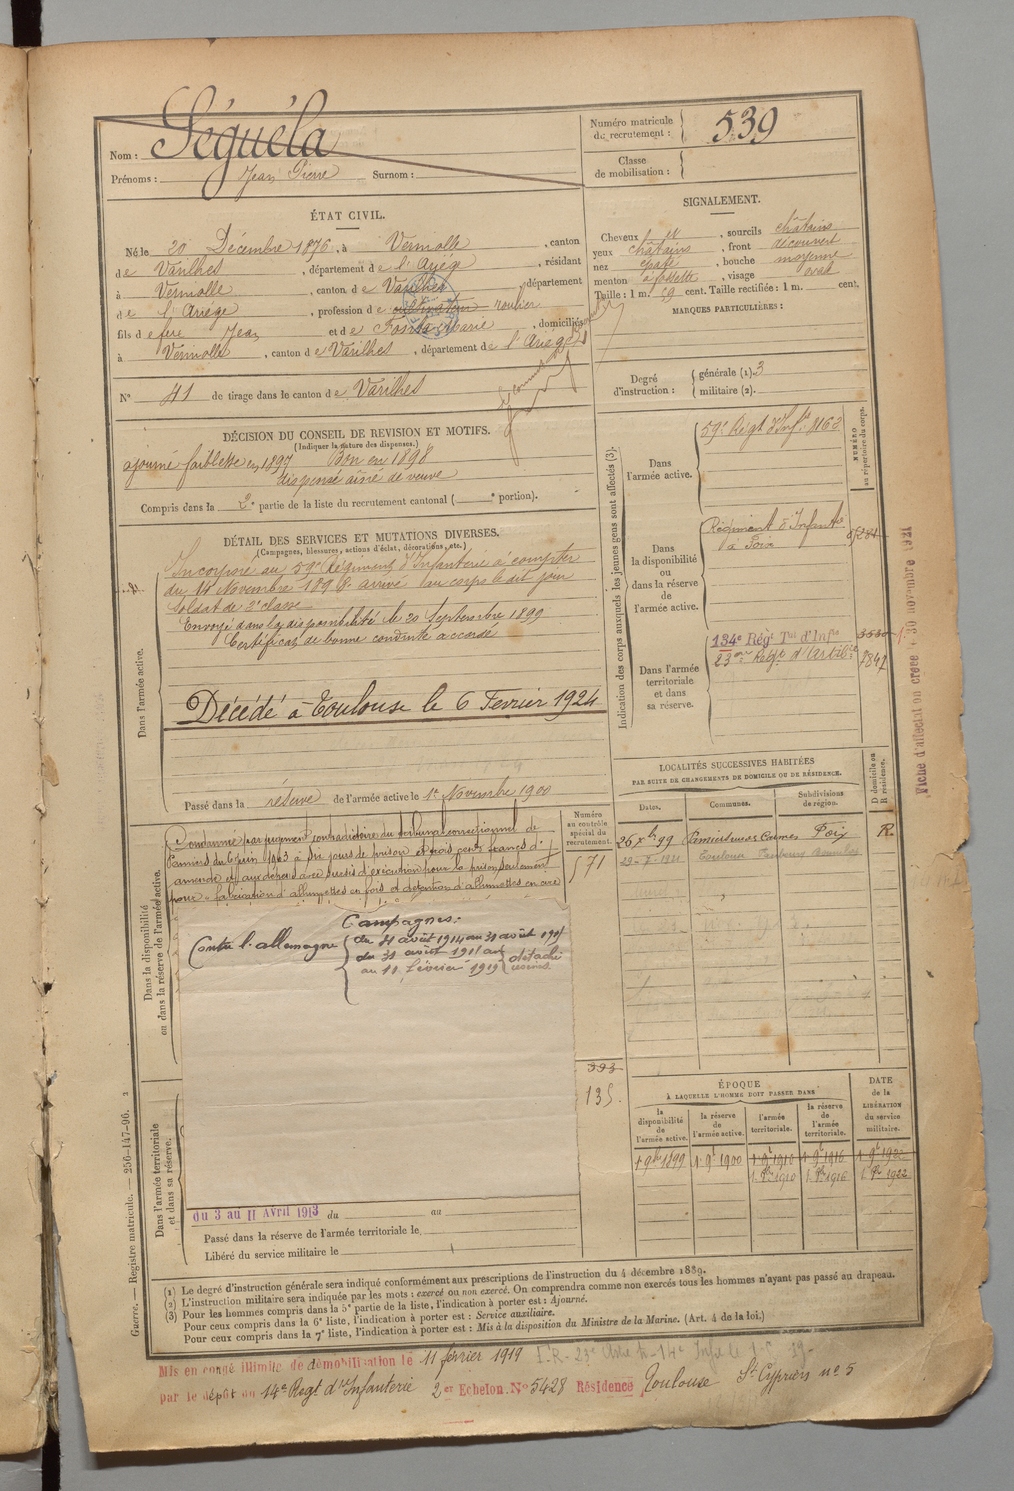 Nom : Séguéla
Prénoms : Jean Pierre Surnom :
Numéro matricule du recrutement : 539
Classe de mobilisation :
ÉTAT CIVIL.
Né le 20 Décembre 1876, à Verniolle, canton
de Varilhes, département de l'Ariège, résidant
à Verniolle, canton de Varilhes, département
de l'Ariège, profession de cultivateur roulier
fils de feu Jean et de Marie, domiciliés
à Verniolle, canton de Varilhes, département de l'Ariège
N° 41 de tirage dans le canton de Varilhes
SIGNALEMENT.
Cheveux, sourcils châtains
yeux châtains, front découvert
nez épaté, bouche moyenne
menton à fossette, visage oval
Taille : 1 m. cent. Taille rectifiée : 1 m. cent.
MARQUES PARTICULIÈRES :
Degré d'instruction : générale (1). 3
militaire (2).
DÉCISION DU CONSEIL DE REVISION ET MOTIFS.
(Indiquer la nature des dispenses.)
ajourné faiblesse en 1897 Bon en 1898
dispensé aîné de veuve
Compris dans la 2e partie de la liste du recrutement cantonal ( e portion).
DÉTAIL DES SERVICES ET MUTATIONS DIVERSES.
(Campagnes, blessures, actions d'éclat, décorations, etc.)
Dans l'armée active.
Incorporé au 59e Régiment d'Infanterie à compter
du 14 Novembre 1898 arrivé au corps le dit jour
Soldat de 2e classe
Envoyé dans la disponibilité le 20 Septembre 1899
Certificat de bonne conduite accordé
Décédé à Toulouse le 6 Fevrier 1924
Passé dans la réserve de l'armée active le 1er Novembre 1900
Indication des corps auxquels les jeunes gens sont affectés (3).
NUMÉRO au répertoire du corps.
Dans l'armée active.
59e Régt d'Infie
Dans la disponibilité ou dans la réserve de l'armée active.
Régiment d'Infantie
à Foix
Dans l'armée territoriale et dans sa réserve.
134e Régt Tal d'Infie
23me Régt d'Artillie
Fiche d'affectation créée 30 novembre 1921
Dans la disponibilité ou dans la réserve de l'armée active.
Condamné par jugement contradictoire du tribunal correctionnel de
Pamiers du 6 juin 1903 à dix jours de prison et trois cents francs d'
amende et aux dépens avec sursis d'exécution pour la prison seulement
pour « fabrication d'allumettes en fois et détention d'allumettes en cire
Numéro au contrôle spécial du recrutement.
571
Campagnes :
Contre l'allemagne
du 11 août 1914 au 31 août 191
du 31 août 191 au
au 11 février 1919
détaché usines.
393
135.
LOCALITÉS SUCCESSIVES HABITÉES
PAR SUITE DE CHANGEMENTS DE DOMICILE OU DE RÉSIDENCE.
Dates. Communes. Subdivisions de région. D domicile ou R résidence.
26 Xbre 99 Foix R.
Toulouse
ÉPOQUE
À LAQUELLE L'HOMME DOIT PASSER DANS
la disponibilité de l'armée active.
la réserve de l'armée active.
l'armée territoriale.
la réserve de l'armée territoriale.
DATE de la LIBÉRATION du service militaire.
1. 9bre 1899 1. 9e 1900 1. 9e 1910 1. 9e 1916 1. 9e 1922
1. 8e 1910 1. 8e 1916 1. 8e 1922
Dans l'armée territoriale et dans sa réserve.
du 3 au 11 Avril 1913 du au
Passé dans la réserve de l'armée territoriale le
Libéré du service militaire le
(1) Le degré d'instruction générale sera indiqué conformément aux prescriptions de l'instruction du 4 décembre 1889.
(2) L'instruction militaire sera indiquée par les mots : exercé ou non exercé. On comprendra comme non exercés tous les hommes n'ayant pas passé au drapeau.
(3) Pour les hommes compris dans la 5e partie de la liste, l'indication à porter est : Ajourné.
Pour ceux compris dans la 6e liste, l'indication à porter est : Service auxiliaire.
Pour ceux compris dans la 7e liste, l'indication à porter est : Mis à la disposition du Ministre de la Marine. (Art. 4 de la loi.)
Guerre. — Registre matricule. — 256-147-96. 2
Mis en congé illimité de démobilisation le 11 février 1919
par le dépôt du 14e Regt d'Infanterie 2er Echelon. No 5428 Résidence Toulouse St Cyprien no 5